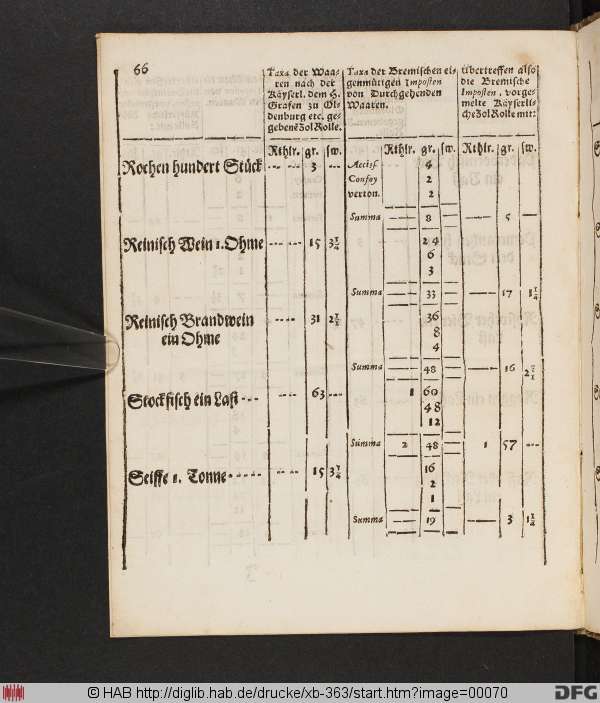 66
Taxa der Waa- Taxa der Bremischen ei- übertreffen also
ren nach der genmütigen Imposten die Bremische
Käyserl. dem H. von Durchgehenden Imposten, vorge-
Grafen zu Ol- Waaren. melte Käyserli-
denburg etc. ge- che Zol Rolle mit:
gebene Zol Rolle.
Rthlr. gr. sw. Rthlr. gr. sw. Rthlr. gr. sw.
Rochen hundert Stück --- --- 3 --- Accis. 4
Consoy 2
verton. 2
Summa — 8 — — 5 —
Reinisch Wein 1. Ohme --- --- 15 3 1/4 24
6
3
Summa — 33 — — 17 1 1/4
Reinisch Brandwein --- --- 31 2 1/2 36
ein Ohme 8
4
Summa — 48 — — 16 2 1/2
Stockfisch ein Last --- --- --- 63 --- 1 60
48
12
Summa 2 48 — 1 57 ---
Seiffe 1. Tonne ----- --- --- 15 3 1/4 16
2
1
Summa — 19 — — 3 1 1/4
© HAB http://diglib.hab.de/drucke/xb-363/start.htm?image=00070
DFG